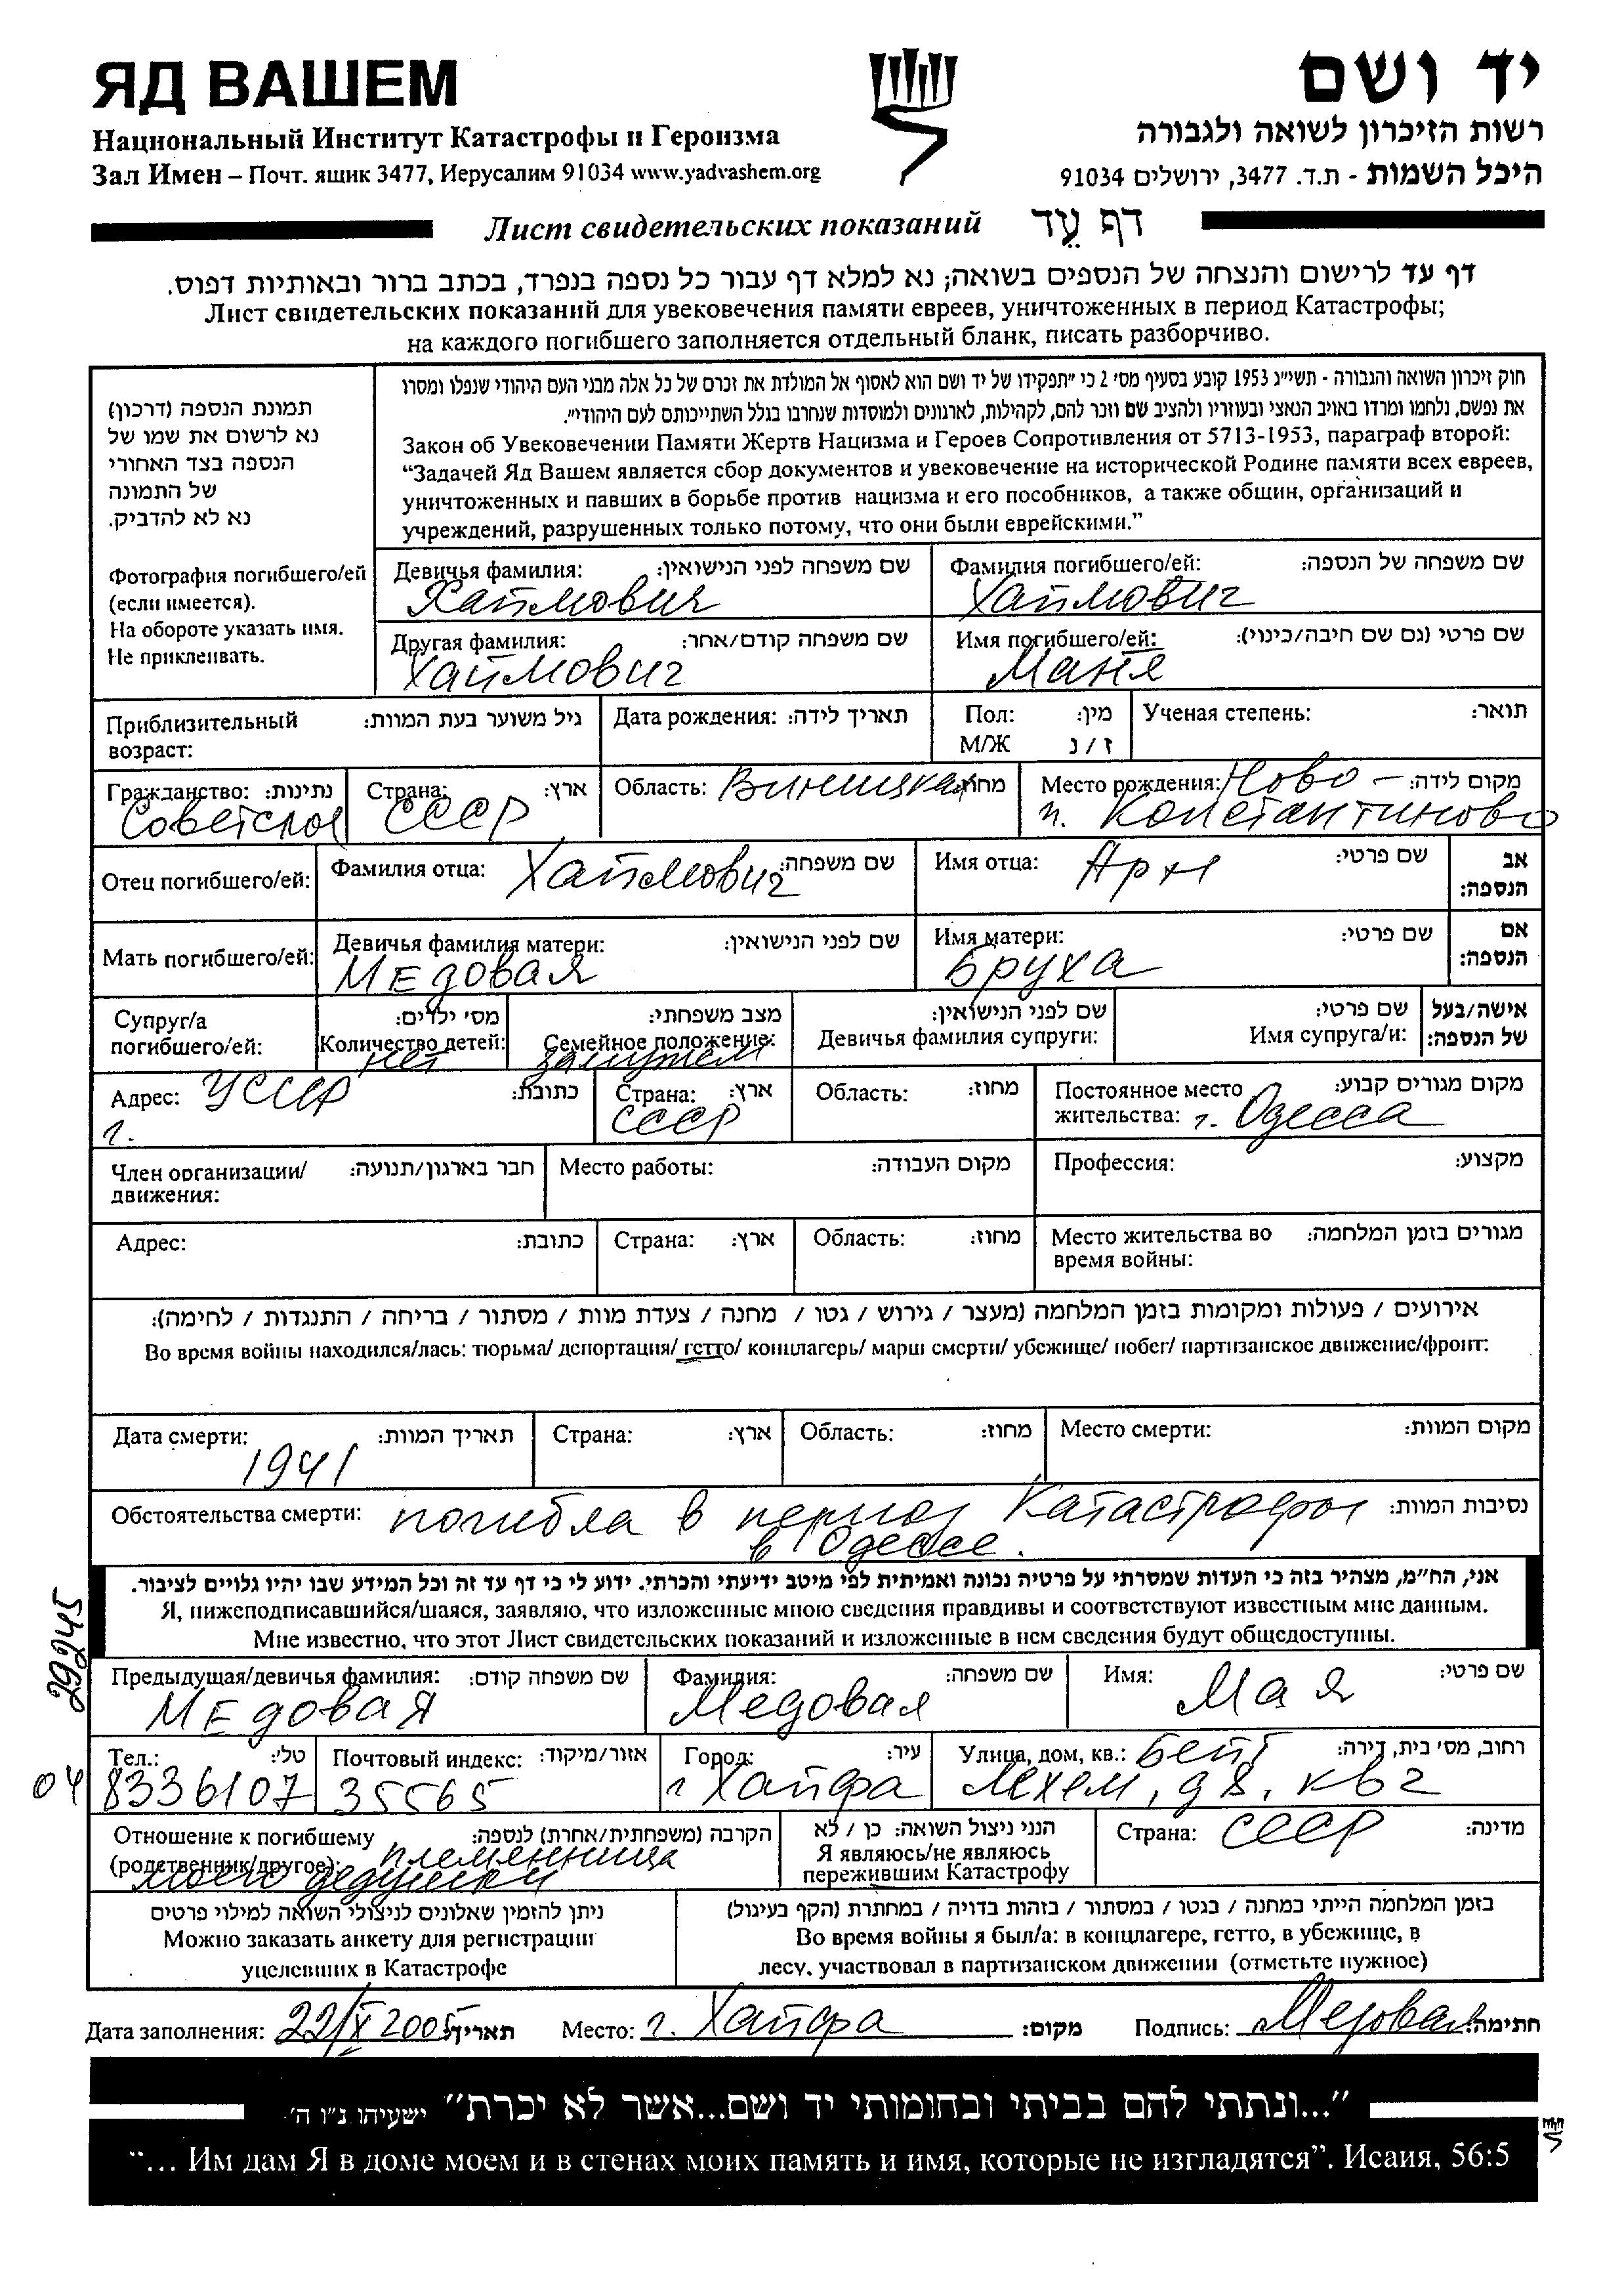 ЯД ВАШЕМ
יד ושם
Национальный Институт Катастрофы и Героизма
רשות הזיכרון לשואה ולגבורה
Зал Имен – Почт. ящик 3477, Иерусалим 91034 www.yadvashem.org
היכל השמות - ת.ד. 3477, ירושלים 91034
Лист свидетельских показаний דף עֵד
דף עד לרישום והנצחה של הנספים בשואה; נא למלא דף עבור כל נספה בנפרד, בכתב ברור ובאותיות דפוס.
Лист свидетельских показаний для увековечения памяти евреев, уничтоженных в период Катастрофы;
на каждого погибшего заполняется отдельный бланк, писать разборчиво.
תמונת הנספה (דרכון)
נא לרשום את שמו של
הנספה בצד האחורי
של התמונה
נא לא להדביק.
Фотография погибшего/ей
(если имеется).
На обороте указать имя.
Не приклеивать.
חוק זיכרון השואה והגבורה - תשי״ג 1953 קובע בסעיף מס׳ 2 כי ״תפקידו של יד ושם הוא לאסוף אל המולדת את זכרם של כל אלה מבני העם היהודי שנפלו ומסרו
את נפשם, נלחמו ומרדו באויב הנאצי ובעוזריו ולהציב שם וזכר להם, לקהילות, לארגונים ולמוסדות שנחרבו בגלל השתייכותם לעם היהודי״.
Закон об Увековечении Памяти Жертв Нацизма и Героев Сопротивления от 5713-1953, параграф второй:
“Задачей Яд Вашем является сбор документов и увековечение на исторической Родине памяти всех евреев,
уничтоженных и павших в борьбе против нацизма и его пособников, а также общин, организаций и
учреждений, разрушенных только потому, что они были еврейскими.”
Девичья фамилия: שם משפחה לפני הנישואין:
Хаймович
Фамилия погибшего/ей: שם משפחה של הנספה:
Хаймович
Другая фамилия: שם משפחה קודם/אחר:
Хаймович
Имя погибшего/ей: שם פרטי (גם שם חיבה/כינוי):
Маня
Приблизительный גיל משוער בעת המוות:
возраст:
Дата рождения: תאריך לידה:
Пол: מין:
М/Ж ז / נ
Ученая степень: תואר:
Гражданство: נתינות:
Советское
Страна: ארץ:
СССР
Область: Виницкая מחוז:
Место рождения: Ново – מקום לידה:
п. Константиново
Отец погибшего/ей:
Фамилия отца: Хаймович שם משפחה:
Имя отца: Арн שם פרטי:
אב
הנספה:
Мать погибшего/ей:
Девичья фамилия матери: שם לפני הנישואין:
Медовая
Имя матери: שם פרטי:
Бруха
אם
הנספה:
Супруг/а
погибшего/ей:
מס׳ ילדים:
Количество детей:
нет
מצב משפחתי:
Семейное положение:
замужем
שם לפני הנישואין:
Девичья фамилия супруги:
שם פרטי:
Имя супруга/и:
אישה/בעל
של הנספה:
Адрес: УССР כתובת:
г.
Страна: ארץ:
СССР
Область: מחוז:
Постоянное место מקום מגורים קבוע:
жительства: г. Одесса
Член организации/ חבר בארגון/תנועה:
движения:
Место работы: מקום העבודה:
Профессия: מקצוע:
Адрес: כתובת:
Страна: ארץ:
Область: מחוז:
Место жительства во מגורים בזמן המלחמה:
время войны:
אירועים / פעולות ומקומות בזמן המלחמה (מעצר / גירוש / גטו / מחנה / צעדת מוות / מסתור / בריחה / התנגדות / לחימה):
Во время войны находился/лась: тюрьма/ депортация/ гетто/ концлагерь/ марш смерти/ убежище/ побег/ партизанское движение/фронт:
Дата смерти: תאריך המוות:
1941
Страна: ארץ:
Область: מחוז:
Место смерти: מקום המוות:
Обстоятельства смерти: погибла в период Катастрофы נסיבות המוות:
в Одессе.
אני, הח״מ, מצהיר בזה כי העדות שמסרתי על פרטיה נכונה ואמיתית לפי מיטב ידיעתי והכרתי. ידוע לי כי דף עד זה וכל המידע שבו יהיו גלויים לציבור.
Я, нижеподписавшийся/шаяся, заявляю, что изложенные мною сведения правдивы и соответствуют известным мне данным.
Мне известно, что этот Лист свидетельских показаний и изложенные в нем сведения будут общедоступны.
Предыдущая/девичья фамилия: שם משפחה קודם:
Медовая
Фамилия: שם משפחה:
Медовая
Имя: Мая שם פרטי:
Тел.: טל׳:
04 8336107
Почтовый индекс: אזור/מיקוד:
35565
Город: עיר:
г Хайфа
Улица, дом, кв.: Бейт רחוב, מס׳ בית, דירה:
Лехем, д 8, кв 2
Отношение к погибшему הקרבה (משפחתית/אחרת) לנספה:
(родственник/другое): племянница
моего дедушки
הנני ניצול השואה: כן / לא
Я являюсь/не являюсь
пережившим Катастрофу
Страна: СССР מדינה:
ניתן להזמין שאלונים לניצולי השואה למילוי פרטים
Можно заказать анкету для регистрации
уцелевших в Катастрофе
בזמן המלחמה הייתי במחנה / בגטו / במסתור / בזהות בדויה / במחתרת (הקף בעיגול)
Во время войны я был/а: в концлагере, гетто, в убежище, в
лесу, участвовал в партизанском движении (отметьте нужное)
Дата заполнения: 22/X 2005 תאריך: Место: г. Хайфа מקום: Подпись: Медовая חתימה:
״...ונתתי להם בביתי ובחומותי יד ושם...אשר לא יכרת״ ישעיהו נ״ו ה׳
“... Им дам Я в доме моем и в стенах моих память и имя, которые не изгладятся”. Исаия, 56:5